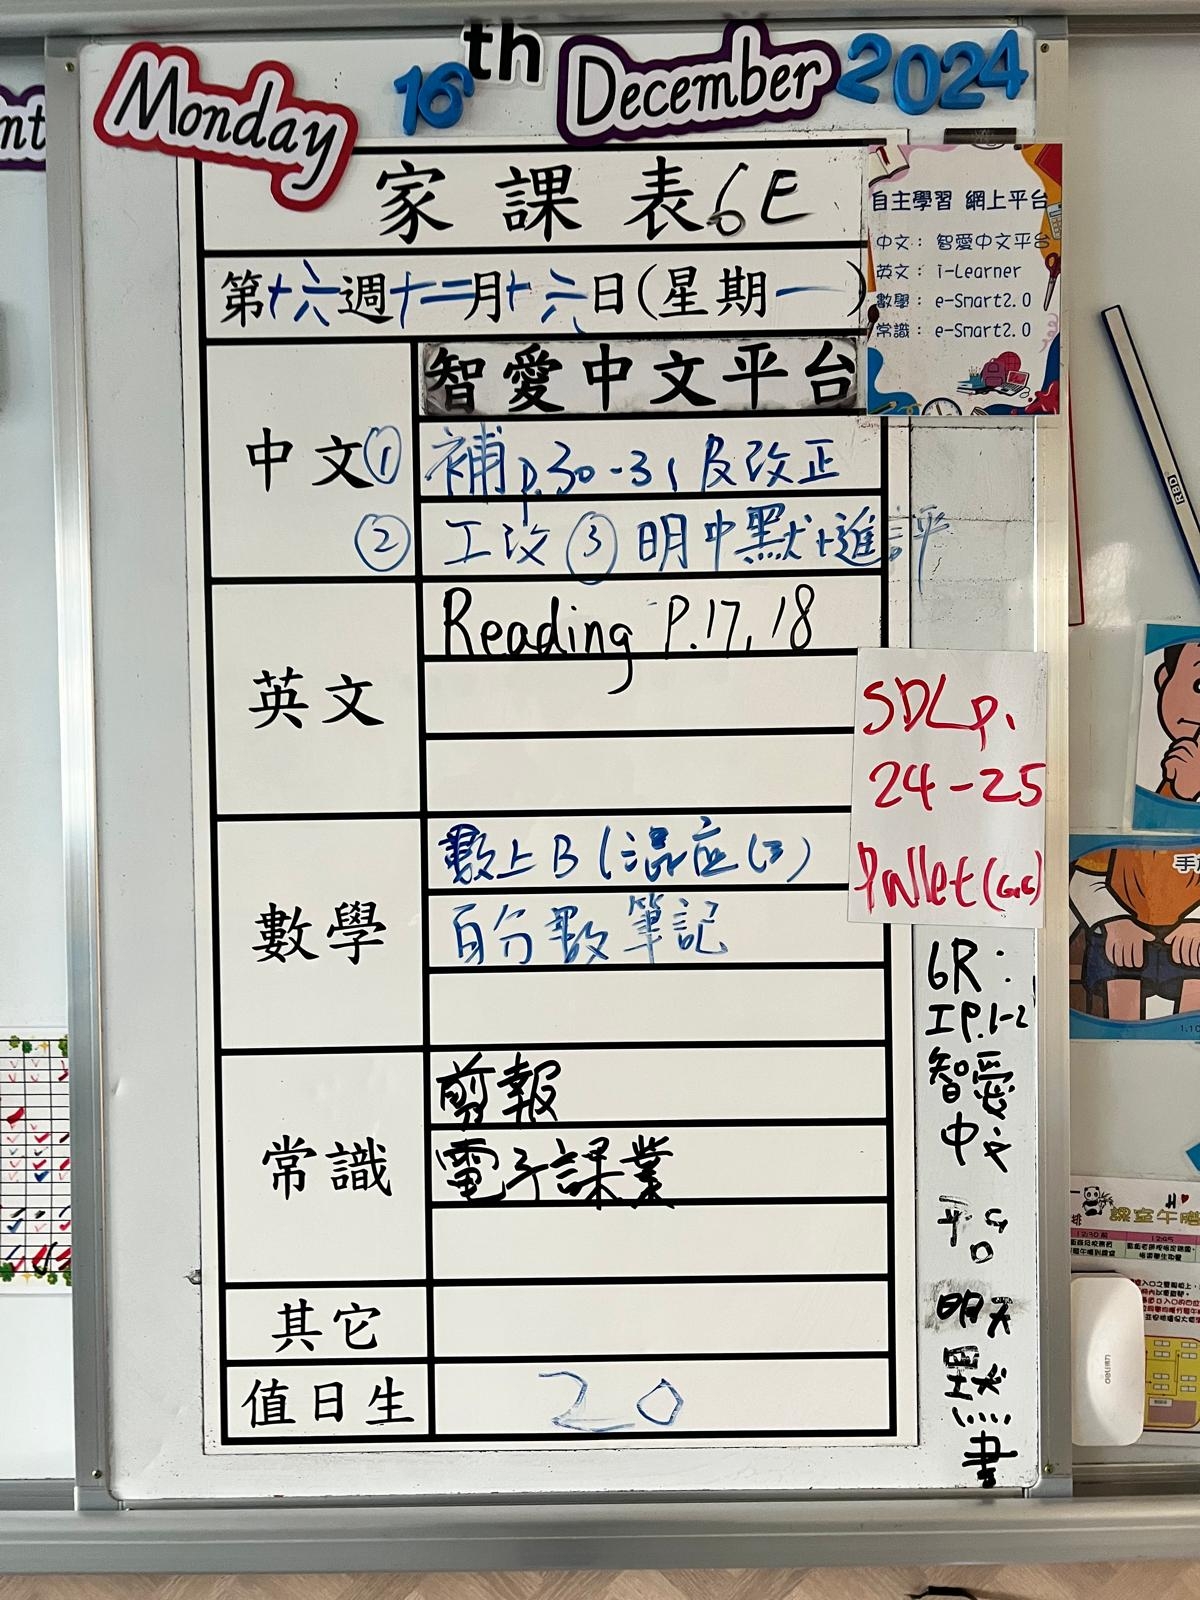 Monday 16th December 2024
家課表6E
第十六週十二月十六日(星期一)
自主學習 網上平台
中文： 智愛中文平台
英文： i-Learner
數學： e-Smart2.0
常識： e-Smart2.0
智愛中文平台
中文① 補p.30-31及改正
② 工改 ③ 明中默+進評
英文
Reading P.17, 18
SDL p.
24-25
(GE)
數學
數上B
百分數筆記
常識
剪報
電子課業
其它
值日生 20
6R:
工P.1-2
智愛
中文
平台
明天
默
書
RBD
deli
手
1.10
課室午膳
12:30
12:45